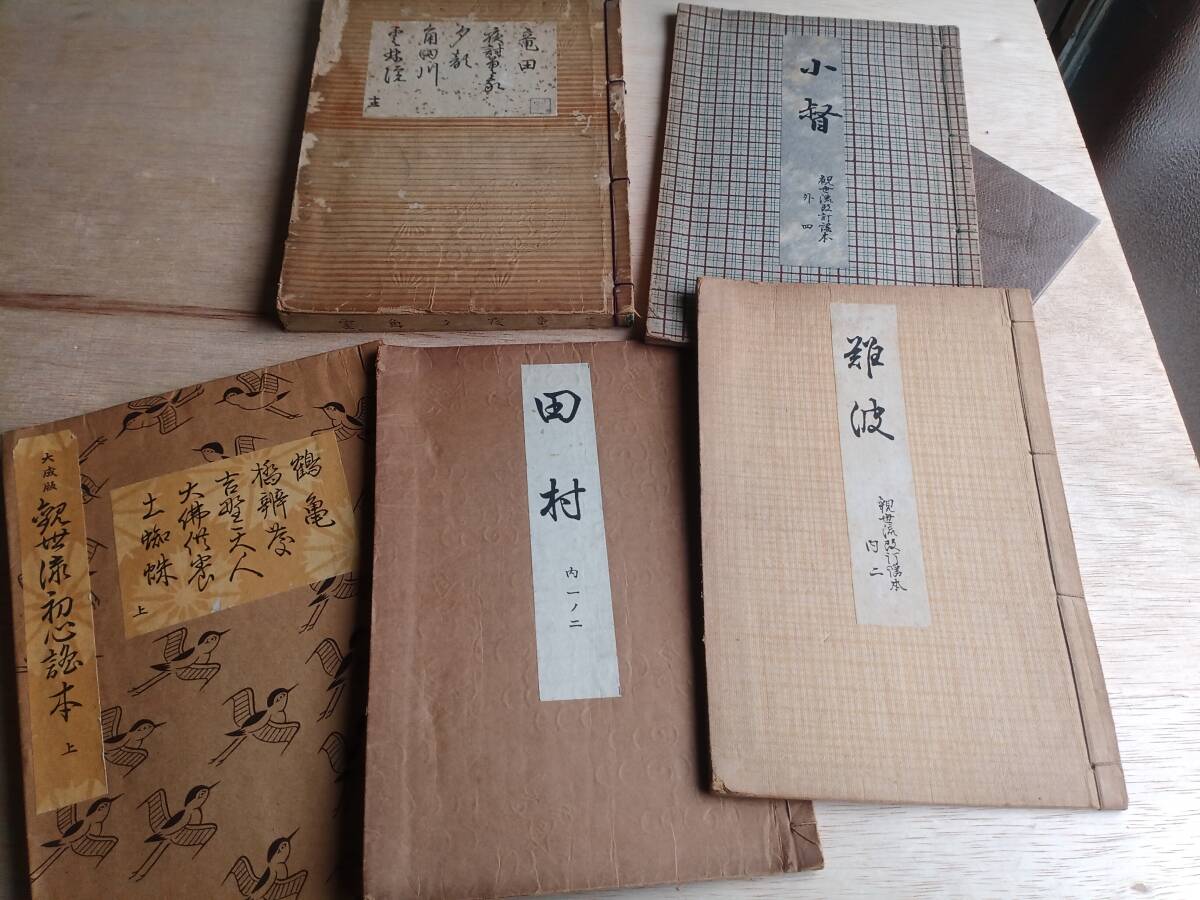 竜田
夜討曽我
夕顔
角田川
雲林院
小督
観世流改訂謡本
外四
大成版
觀世流初心謡本
上
鶴亀
橋辨慶
吉野天人
大佛供養
土蜘蛛
上
田村
内一ノ二
難波
観世流改訂謡本
内二